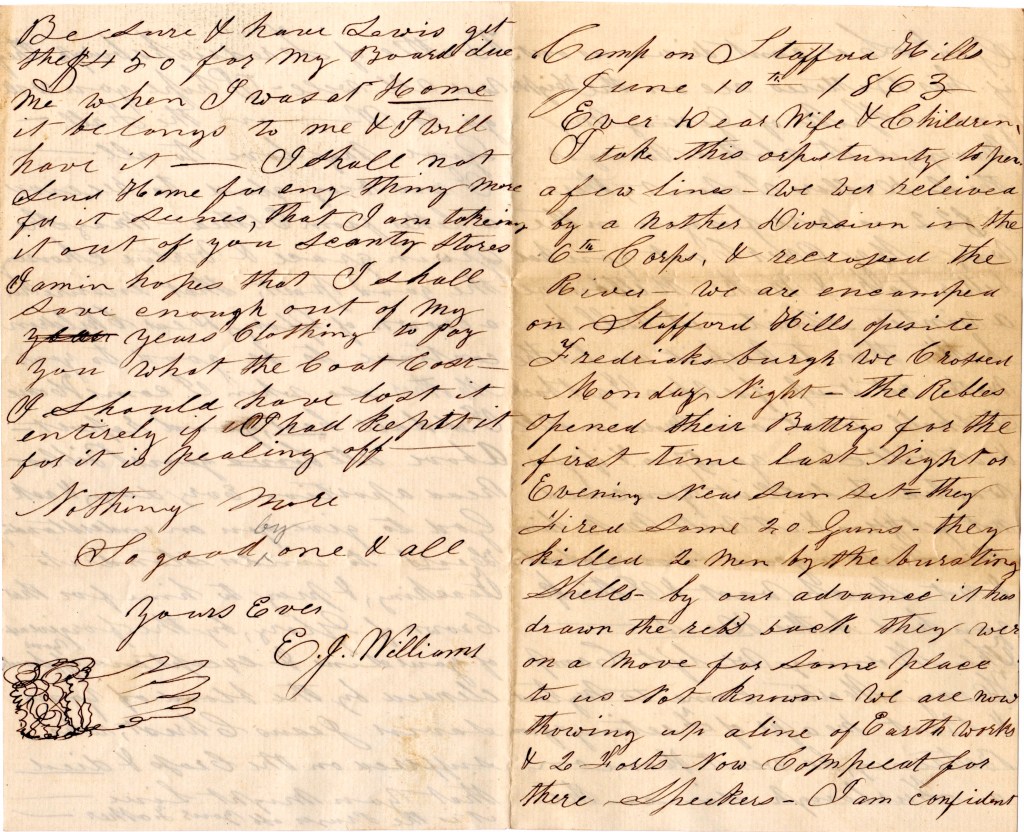 Be sure & have Lewis get
the $4 50 for my Board due
me when I was at Home
it belongs to me & I will
have it — I shall not
Send Home for eny thing more
for it seemes, that I am takeing
it out of you scanty stores
I am in hopes that I shall
save enough out of my
years Clothing to pay
you what the Coat Cost —
& should have lost it
entirely if I had keptt it
for it is pealing off —
Nothing more
So good by one & all
Yours Ever
E. J. Williams
Camp on Stafford Hills
June 10th 1863
Ever Dear Wife & Children,
I take this orpotunity to pen
a few lines — we wer releived
by a nother Division in the
6th Corps, & recrossed the
River — we are encamped
on Stafford Hills oposite
Fredricksburgh we Crossed
Monday Night — the Rebles
opened their Battrys for the
first time last Night or
Evening Near sun set — they
Fired Some 20 Guns — they
killed 2 men by the bursting
Shells — by our advance it has
drawn the rebs back they wer
on a move for some place
to us Not known — We are now
thowing up a line of Earth works
& 2 Forts Now Compleat for
there Speekers — I am confident